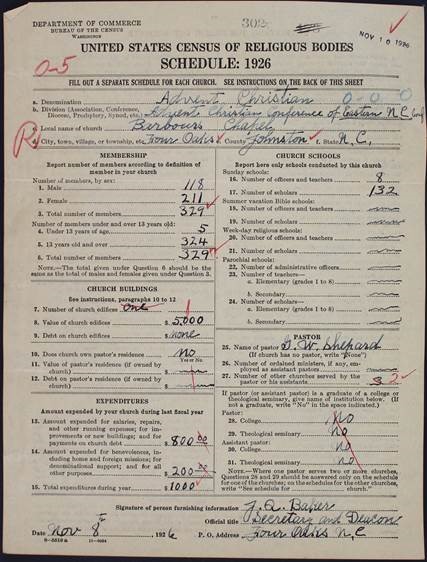 DEPARTMENT OF COMMERCE
BUREAU OF THE CENSUS
WASHINGTON
302
NOV 10 1926
UNITED STATES CENSUS OF RELIGIOUS BODIES
SCHEDULE: 1926
0-5
FILL OUT A SEPARATE SCHEDULE FOR EACH CHURCH. SEE INSTRUCTIONS ON THE BACK OF THIS SHEET
a. Denomination Advent Christian 0-0 0
b. Division (Association, Conference, Diocese, Presbytery, Synod, etc.) Advent Christian Conference of Eastern N.C.
c. Local name of church Barbours Chapel
R
d. City, town, village, or township, etc. Four Oaks e. County Johnston f. State N.C.
MEMBERSHIP
Report number of members according to definition of member in your church
Number of members, by sex:
1. Male 118
2. Female 211
3. Total number of members 329
Number of members under and over 13 years old:
4. Under 13 years of age 5
5. 13 years old and over 324
6. Total number of members 329
NOTE.—The total given under Question 6 should be the same as the total of males and females given under Question 3.
CHURCH BUILDINGS
See instructions, paragraphs 10 to 12
7. Number of church edifices one 1
8. Value of church edifices $ 5,000
9. Debt on church edifices $ none
10. Does church own pastor's residence? no
Yes or No
11. Value of pastor's residence (if owned by church) $
12. Debt on pastor's residence (if owned by church) $
EXPENDITURES
Amount expended by your church during last fiscal year
13. Amount expended for salaries, repairs, and other running expenses; for improvements or new buildings; and for payments on church debt $ 800 00
14. Amount expended for benevolences, including home and foreign missions; for denominational support; and for all other purposes $ 200 00
15. Total expenditures during year $ 1000
CHURCH SCHOOLS
Report here only schools conducted by this church
Sunday schools:
16. Number of officers and teachers 8
17. Number of scholars 132
Summer vacation Bible schools:
18. Number of officers and teachers
19. Number of scholars
Week-day religious schools:
20. Number of officers and teachers
21. Number of scholars
Parochial schools:
22. Number of administrative officers
23. Number of teachers—
a. Elementary (grades 1 to 8)
b. Secondary
24. Number of scholars—
a. Elementary (grades 1 to 8)
b. Secondary
PASTOR
25. Name of pastor G. W. Shepard
(If church has no pastor, write "None")
26. Number of ordained ministers, if any, employed as assistant pastors
27. Number of other churches served by the pastor or his assistants 3 2
If pastor (or assistant pastor) is a graduate of a college or theological seminary, give name of institution below. (If not a graduate, write "No" in the space indicated.)
Pastor:
28. College No
29. Theological seminary No
Assistant pastor:
30. College No
31. Theological seminary No
NOTE.—Where one pastor serves two or more churches, Questions 28 and 29 should be answered only on the schedule for one of the churches; on the schedules for the other churches, write "See schedule for church."
Signature of person furnishing information J. A. Baker
Official title Secretary and Deacon
Date Nov 8th, 1926 P. O. Address Four Oaks N.C.